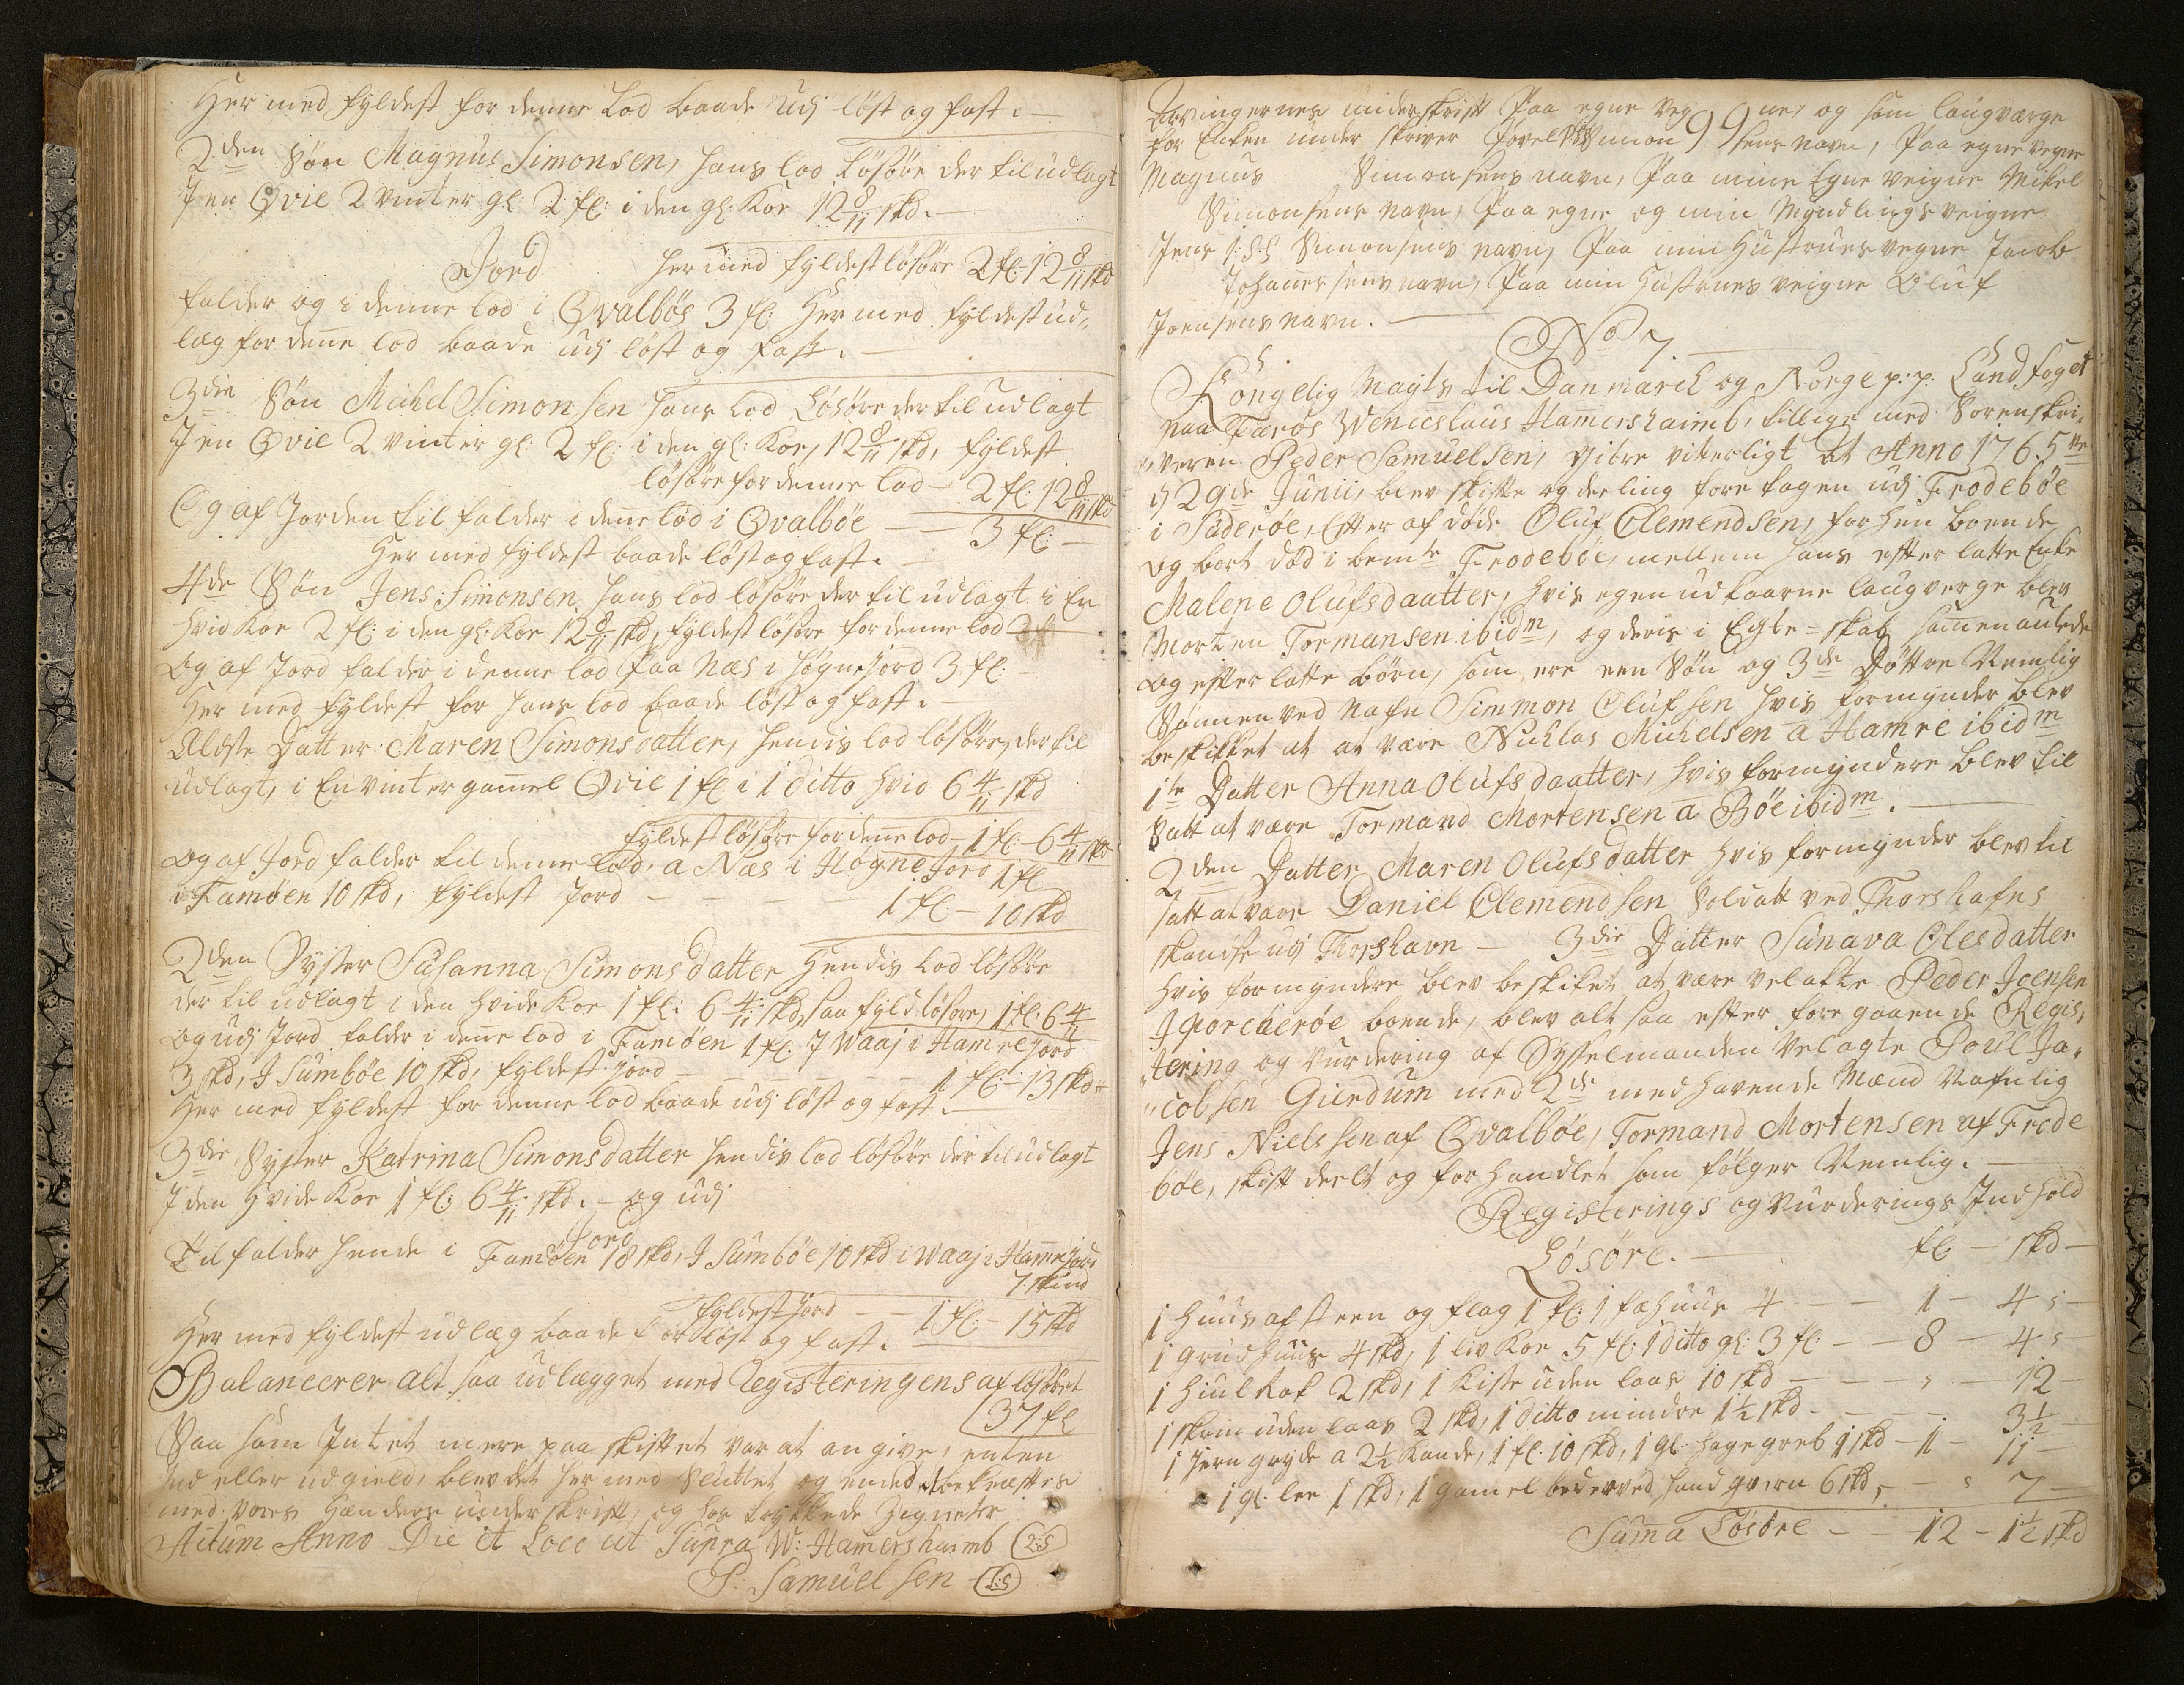 Her med fyldest for denne Lod baade udj løst og fast.
2den Søn Magnus Simonsen, hans lod Løsøre der til udlagt
J en Qvie 2 vinter gl: 2 fl: i den gl: Koe 12 8/11 skd.
her med fyldest løsøre 2 fl: 12 8/11 skd
Jord
falder og i denne lod i Qvalbøe 3 fl: Her med fyldest ud„
læg for denne lod baade udj løst og fast.
3die Søn Michel Simonsen hans lod Løsøre der til udlagt
J en Qvie 2 vinter gl: 2 fl: i den gl: Koe, 12 8/11 skd, fyldest
løsøre for denne lod — 2 fl: 12 8/11 skd
Og af Jorden til falder i denne lod i Qvalbøe — 3 fl: —
Her med fyldest baade løst og fast.
4de Søn Jens Simonsen hans lod løsøre der til udlagt i En
hvid Koe 2 fl: i den gl: Koe 12 8/11 skd, fyldest løsøre for denne lod
og af Jord falder i denne lod paa Næs i høgnejord 3 fl: —
Her med fyldest for hans lod baade løst og fast.
Ældste Datter Maren Simonsdatter, hendis lod løsøre, der til
udlagt, i En vinter gamel Qvie 1 fl i 1 ditto hvid 6 4/11 skd
fyldest løsøre for denne lod — 1 fl: — 6 4/11 skd
og af Jord falder til denne lod, a Næs i Høgne Jord 1 fl
i Famøen 10 skd, fyldest Jord — — — — 1 fl — 10 skd
2den Syster Susanna Simonsdatter Hendis Lod løsøre
der til udlagt i den hvide Koe 1 fl: 6 4/11 skd, saa fyld løsøre, 1 fl: 6 4/11
og udj Jord falder i denne lod i Famøen 1 fl: J Waaj i Hamrejord
3 skd, J Sumbøe 10 skd, fyldest jord — — — — 1 fl: — 13 skd
Her med fyldest for denne lod baade udj løst og fast.
3die Syster Katrina Simonsdatter hendis lod løsøre der til udlagt
J den Hvide Koe 1 fl: 6 4/11 skd. — og udj
Jord
Til falder hende i Famøen 18 skd, J Sumbøe 10 skd i Waaj i Hamrejord
7 skind
fyldest Jord — — 1 fl: — 15 skd
Her med fyldest udlæg baade for løst og fast.
Balancerer alt saa udlægget med Registeringens af løsøret
37 fl
Saa som Jntet mere paa skiftet var at angive, enten
ind eller udgield, blev det her med Sluttet og ended bekræftes
med vores Hænders underskrift, og hos trykkede Zigneter
Actum Anno Die et Loco ut Supra W: Hamershaimb (L:S)
P: Samuelsen (L:S)
Arvingernes underskrift Paa egne veg 99 ne, og som laugværge
for Enken under skriver Povel PSS Simon sens navn, Paa egne vegne
Magnus Simonsens navn, Paa mine Egne veigne Mikel
Simonsens navn, Paa egne og min Myndlings veigne
Jens J:S:S Simonsens navn, Paa min Hustrues vegne Jacob
Johannessens navn, Paa min Hustrues veigne Oluf
Joensens navn.
No 7.
Kongelig Mayts til Danmarch og Norge p.p. Landfoget
paa Færøe Wenceslaus Hamershaimb, tillige med Sorenskri„
„veren Peder Samuelsen, giøre viterligt at Anno 1765 ve
d 29de Junii, blev skifte og deeling fore tagen udj Frodebøe
i Suderøe, Efter af døde Oluf Clemendsen, forhen boende
og bort død i bemte Frodebøe, mellem hans efter latte Enke
Malene Olufsdaatter, hvis egen udkaarne laugverge blev
Morten Tormansen ibidm, og deris i Egte-skab sammen aulede
og efter latte børn, som ere een Søn og 3de Døttre Nemlig
Sønnen ved Nafn Simmon Olufsen hvis formynder blev
beskikket at at være Nichlas Michelsen a Hamre ibidm
1te Datter Anna Olufsdaatter, hvis formyndere blev til
Satt at være Tormand Mortensen a Bøe ibidm.
2den Datter Maren Olufsdatter hvis formynder blev til
satt at være Daniel Clemendsen Soldatt ved Thorshafns
skandse udj Thorshavn — 3die Datter Sunava Olesdatter
hvis formyndere blev beskiket at være velakte Peder Joensen
J Porcherøe boende, blev alt saa efter foregaaende Regis„
„tering og Vurdering af Sysselmanden Velagte Poul Ja„
„cobsen Giendum med 2de med havende Mænd Nafnlig
Jens Nielssen af Qvalbøe, Tormand Mortensen af Frode
bøe, skift deelt og forhandlet som følger Nemlig.
Registerings og Vurderings Indhold
Løsøre. — fl — skd —
1 Huus af steen og flag 1 fl: 1 fæhuus 4 — — 1 — 4 „ —
1 Grudhuus 4 skd, 1 liv Koe 5 fl: 1 ditto gl: 3 fl: — — 8 — 4 „
1 Hiul Rok 2 skd, 1 Kiste uden laas 10 skd — — — „ — 12 —
1 skrin uden laas 2 skd, 1 ditto mindre 1½ skd — — — 3½ —
1 Jern gryde a 2½ Kande, 1 fl: 10 skd, 1 gl: hagegreb 1 skd — 1 — 11 —
1 gl: lee 1 skd, 1 gamel bederved hand qvern 6 skd, „ 7 —
Suma Løsøre — — 12 — 1½ skd